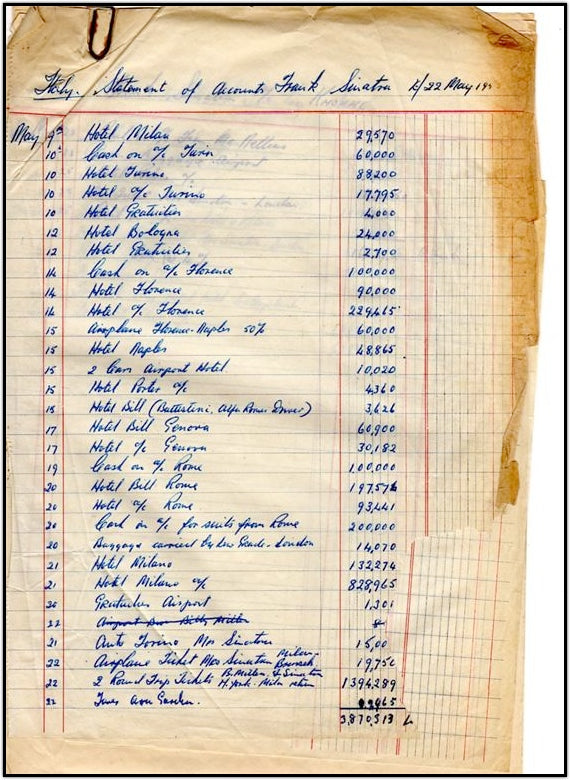 Italy. Statement of Accounts Frank Sinatra to/22 May 195
May 9th Hotel Milan 29,570
10th Cash on a/c Turin 60,000
10 Hotel Turino 88,200
10 Hotel a/c Turino 17,795
10 Hotel Gratuities 4,000
12 Hotel Bologna 24,000
12 Hotel Gratuities 2,700
14 Cash on a/c Florence 100,000
14 Hotel Florence 90,000
14 Hotel a/c Florence 229,465
15 Aeroplane Florence-Naples 50% 60,000
15 Hotel Naples 48,865
15 2 Cars Airport Hotel 10,020
15 Hotel Porter a/c 4360
18 Hotel Bill (Battistini, Alfa Romeo Driver) 3,626
17 Hotel Bill Genova 60,900
17 Hotel a/c Genova 30,182
19 Cash on a/c Rome 100,000
20 Hotel Bill Rome 197,576
20 Hotel a/c Rome 93,441
20 Cash on a/c for suits from Rome 200,000
20 Baggage carried London 14,070
21 Hotel Milano 132,274
21 Hotel Milano a/c 828,965
20 Gratuities Airport 1,201
22 Airport Billy Miller
21 Auto Torino Mrs Sinatra 15,00
22 Aeroplane Ticket Mrs Sinatra Milan- 19,75
22 2 Round Trip Tickets B. Miller, F. Sinatra N. York - Milan return 1394,289
22 Taxes Ava Gardner. 965
3,870,513 L